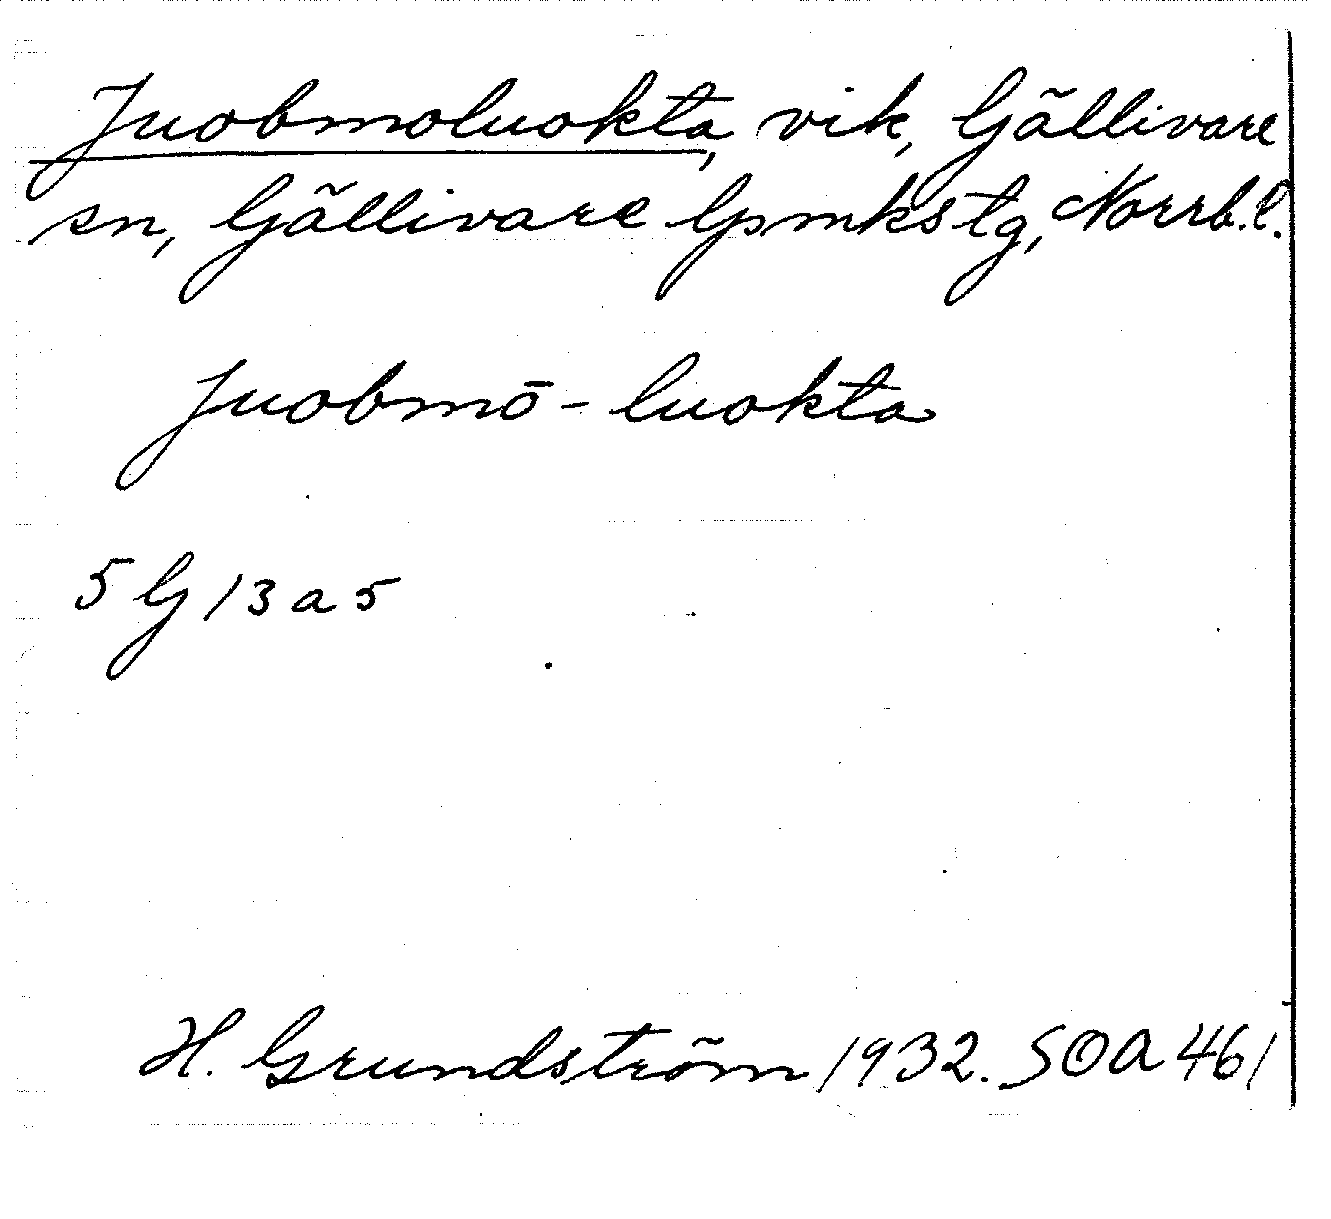 Juobmoluokta, vik, Gällivare
sn, Gällivare lpmkstg, Norrb.l.
Juobmō-luokta
5 G 13 a 5
H. Grundström 1932. SOA 461